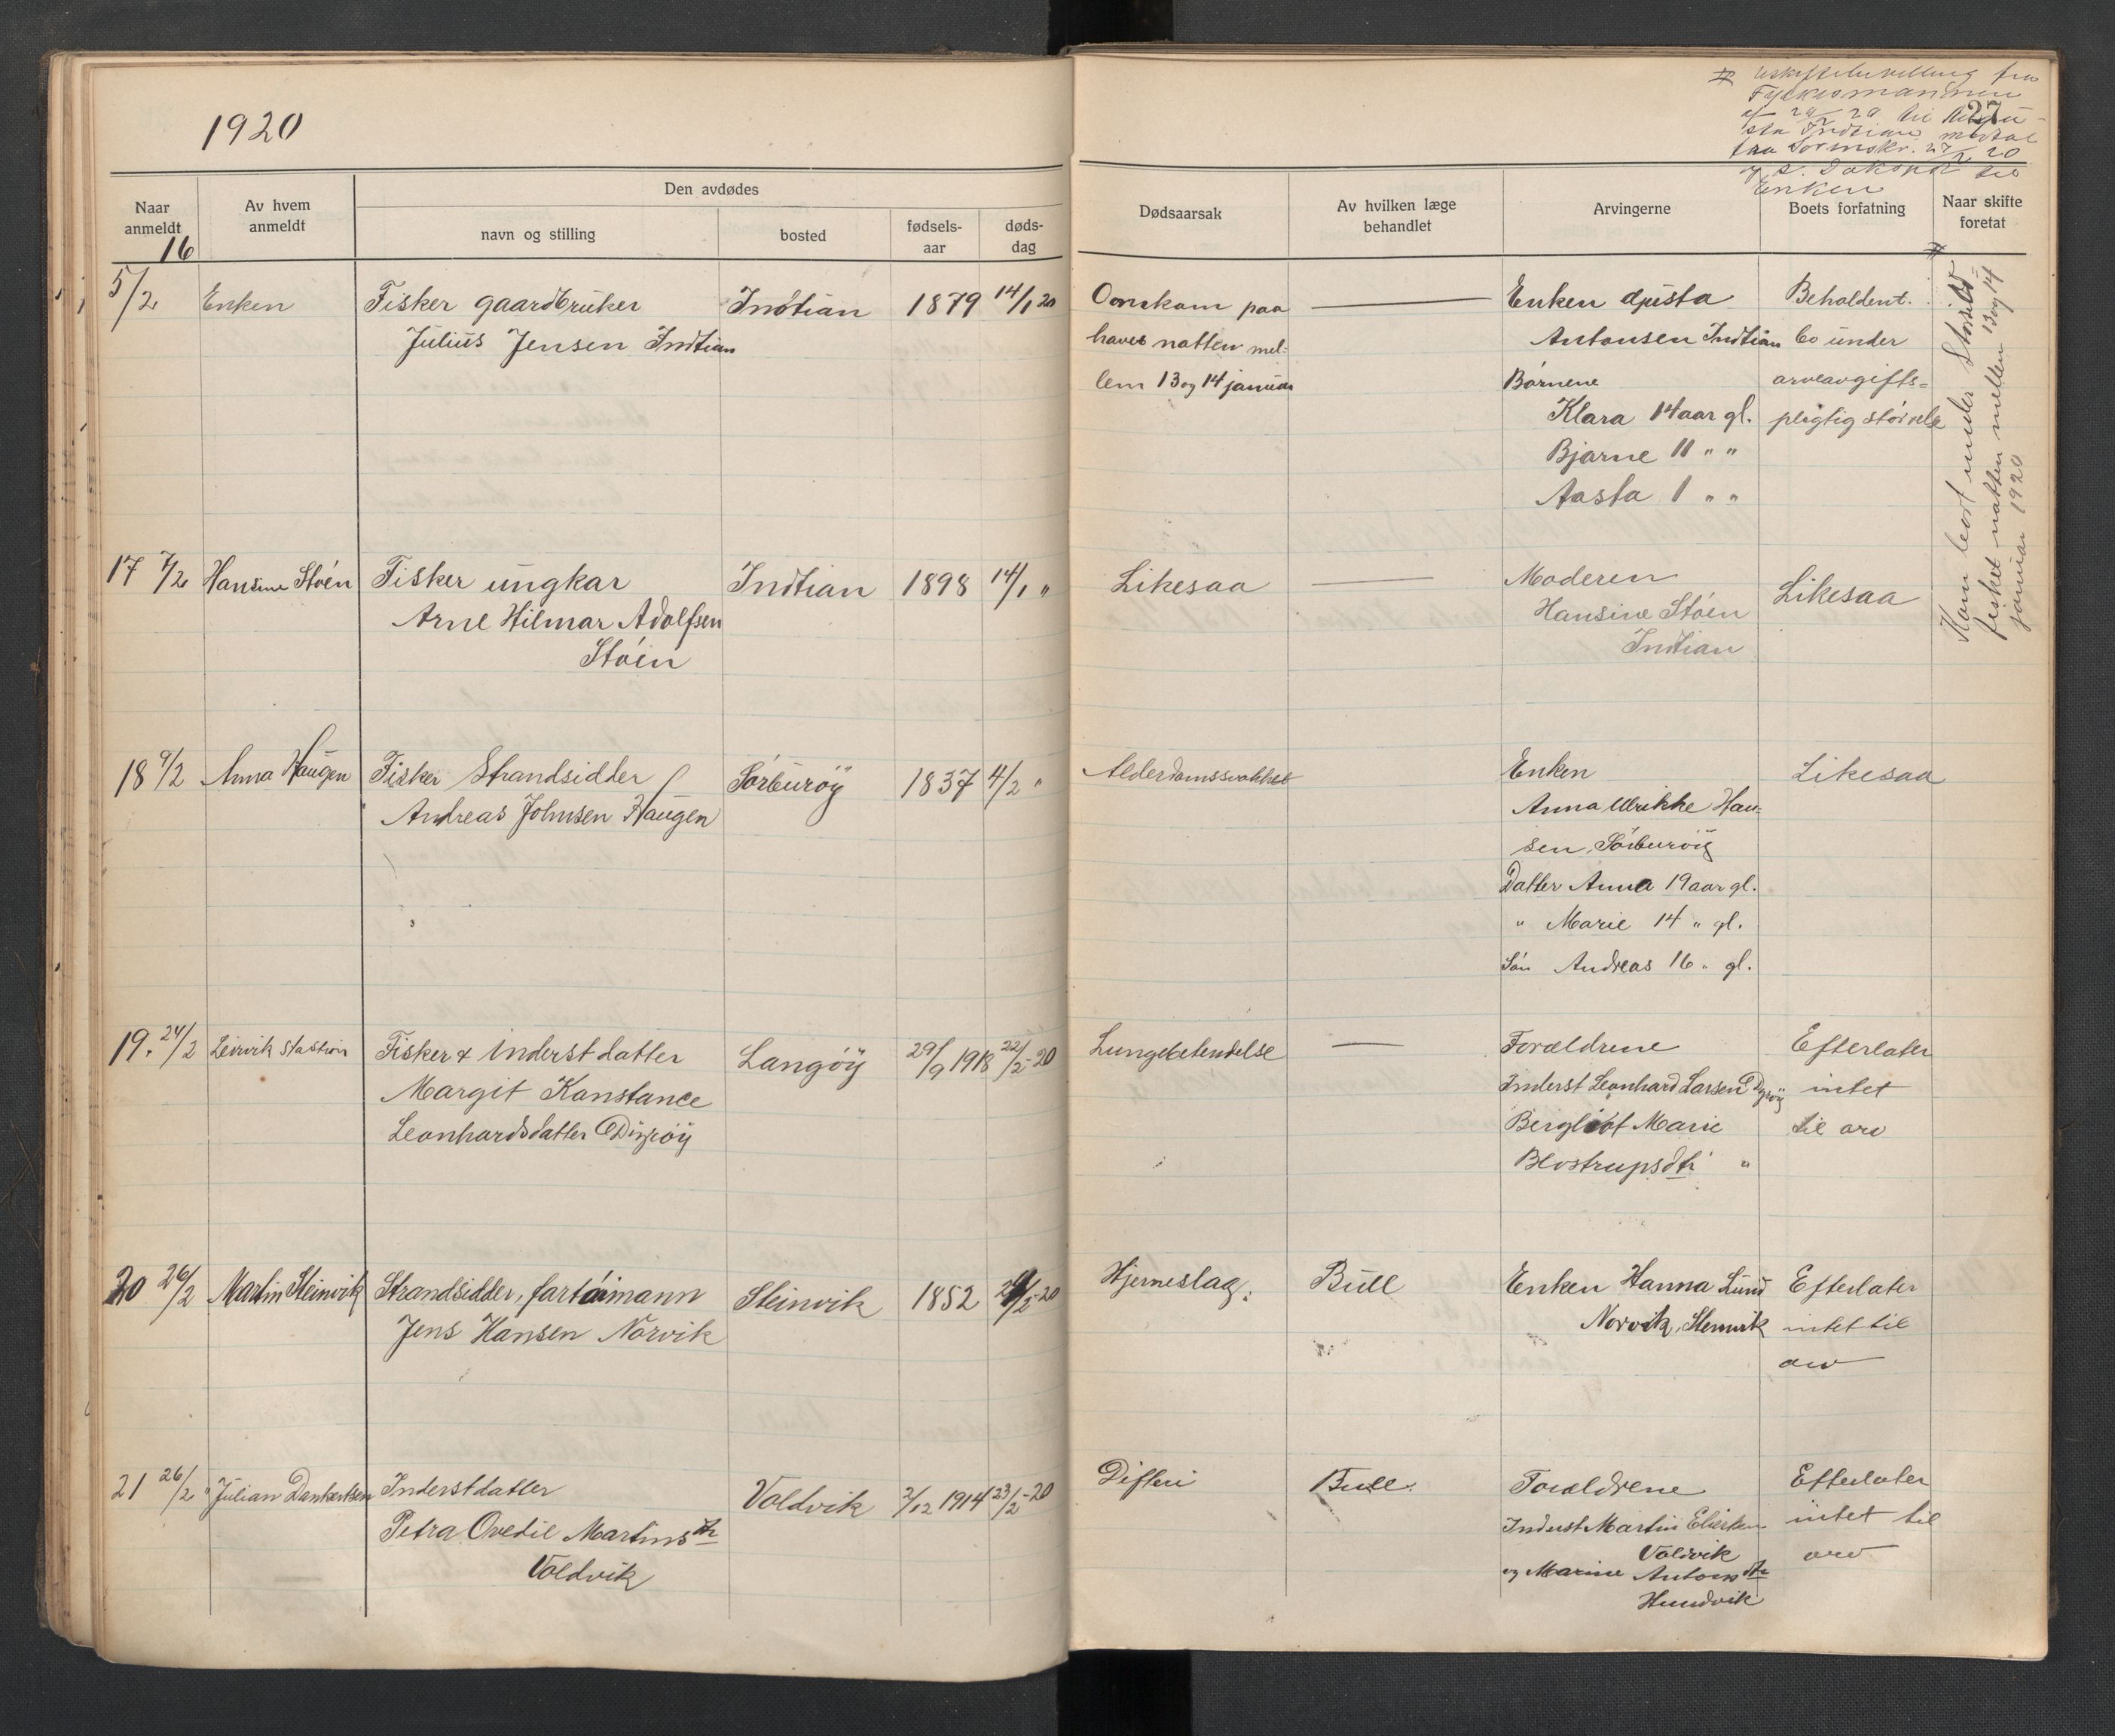 1920
27
Fylkesmannen
Enken
Naar anmeldt
Av hvem anmeldt
Den avdødes
navn og stilling
bosted
fødsels-aar
døds-dag
Dødsaarsak
Av hvilken læge behandlet
Arvingerne
Boets forfatning
Naar skifte foretat
16
5/2 Enken Fisker gaardbruker Indtian 1879 14/1 20 Omkom paa Enken Beholdent.
Julius Jensen Indtian havet natten mel- Antonsen Indtian bo under
lem 13 og 14 januar Børnene arveavgifts-
Klara 14 aar gl. pligtig størrelse
Bjarne 11 " "
Aasta 1 " "
Kom bort under Storsild-
fisket natten mellem 13 og 14
januar 1920
17 7/2 Hansine Støen Fisker ungkar Indtian 1898 14/1 " Likesaa Moderen Likesaa
Arne Hilmar Adolfsen Hansine Støen
Støen Indtian
18 9/2 Anna Haugen Fisker Strandsidder Sørburøy 1837 4/2 " Alderdomssvakhet Enken Likesaa
Andreas Johnsen Haugen Anna Ulrikke Han-
sen, Sørburøy
Datter Anna 19 aar gl.
" Marie 14 " gl.
Søn Andreas 16 " gl.
19. 24/2 Leirvik station Fisker & Inderst datter Langøy 29/9 1918 22/2-20 Lungebetendelse Forældrene Efterlater
Margit Konstance Inderst Leonhard Larsen Dyrøy intet
Leonhardsdatter Dyrøy Bergliot Marie til arv
Blostrupsdtr "
20 26/2 Martin Steinvik Strandsidder, fartøimann Steinvik 1852 /2-20 Hjerneslag. Bull Enken Hanna Lund Efterlater
Jens Hansen Norvik Norvik, Steinvik intet til
arv
21 26/2 Julian Dankertsen Inderstdatter Voldvik 2/12 1914 23/2-20 Difteri Bull. Forældrene Efterlater
Petra Ovedie Martinsdtr Inderst Martin intet til
Voldvik Voldvik arv
og Marine Antonsdtr
Hundvik